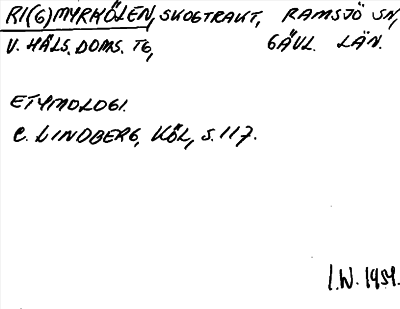 RI(G)MYRHÖLEN, SKOGTRAKT, RAMSJÖ SN,
V. HÄLS. DOMS. TG, GÄVL. LÄN.
ETYMOLOGI.
C. LINDBERG, KÖL, S. 117.
I.W. 1959.